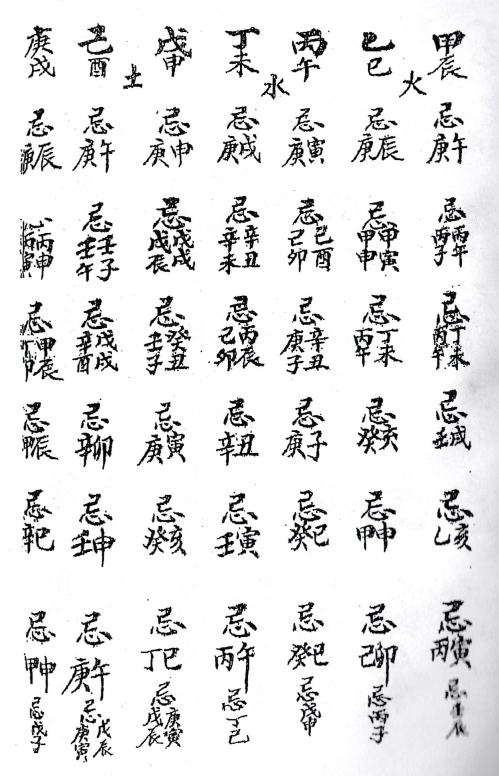 甲辰 忌庚午 忌丙午丙子 忌丁未丙午 忌壬戌 忌乙亥 忌丙寅 忌
火
乙巳 忌庚辰 忌甲寅甲申 忌丁未丙午 忌癸亥 忌甲申 忌己卯 忌丙子
丙午 忌庚寅 忌己酉己卯 忌辛丑庚子 忌庚子 忌癸巳 忌癸巳 忌戊申
水
丁未 忌庚戌 忌辛丑辛未 忌丙辰己卯 忌辛丑 忌壬寅 忌丙午 忌丁己
戊申 忌庚申 忌戊戌戊辰 忌癸丑壬子 忌庚寅 忌癸亥 忌丁巳 忌庚寅戊辰
土
己酉 忌庚午 忌壬子壬午 忌戊戌辛酉 忌辛卯 忌壬申 忌庚午 忌戊辰庚寅
庚戌 忌庚辰 丙申寅 忌甲辰 忌甲辰 忌辛巳 忌甲申 忌戊子